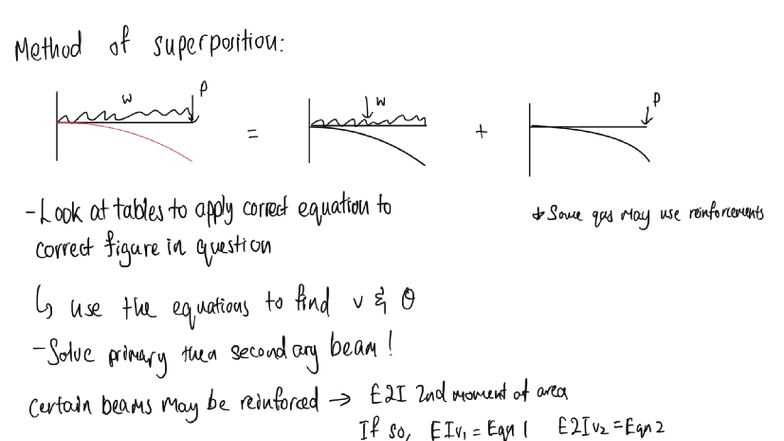 Method of superposition:
w P = w + P
-Look at tables to apply correct equation to
correct figure in question
* Some qns may use reinforcements
↳ use the equations to find v & θ
-Solve primary then secondary beam!
Certain beams may be reinforced → E2I 2nd moment of area
If so, EIv₁ = Eqn 1 E2Iv₂ = Eqn 2